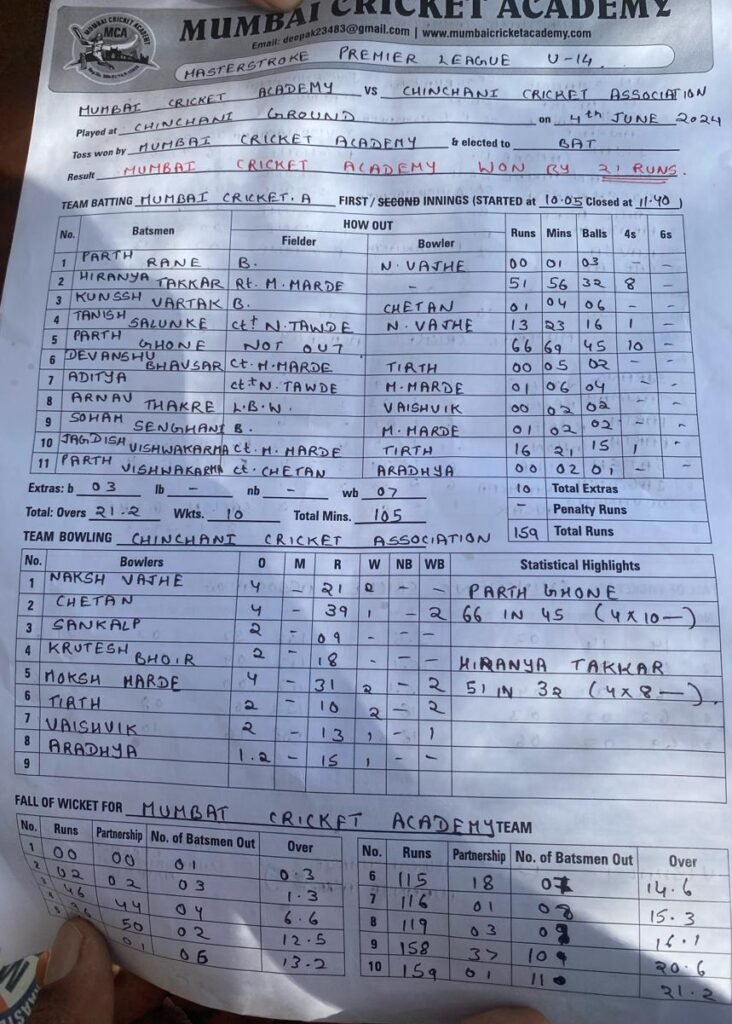 MUMBAI CRICKET ACADEMY
MUMBAI CRICKET ACADEMY
MCA
Email: deepak23483@gmail.com | www.mumbaicricketacademy.com
MASTERSTROKE PREMIER LEAGUE U-14.
MUMBAI CRICKET ACADEMY VS CHINCHANI CRICKET ASSOCIATION
Played at CHINCHANI GROUND on 4th JUNE 2024
Toss won by MUMBAI CRICKET ACADEMY & elected to BAT
Result MUMBAI CRICKET ACADEMY WON BY 21 RUNS.
TEAM BATTING MUMBAI CRICKET. A FIRST / SECOND INNINGS (STARTED at 10.05 Closed at 11.40)
No. Batsmen HOW OUT Fielder Bowler Runs Mins Balls 4s 6s
1 PARTH RANE B. N. VAJHE 00 01 03 - -
2 HIRANYA TAKKAR Rt. M. MARDE - 51 56 32 8 -
3 KUNSSH VARTAK B. CHETAN 01 04 06 - -
4 TANISH SALUNKE ct† N. TAWDE N. VAJHE 13 23 16 1 -
5 PARTH GHONE NOT OUT 66 69 45 10 -
6 DEVANSHU BHAVSAR Ct. M. MARDE TIRTH 00 05 02 - -
7 ADITYA ct† N. TAWDE M. MARDE 01 06 04 - -
8 ARNAV THAKRE L.B.W. VAISHVIK 00 02 02 - -
9 SOHAM SENGHANI B. M. MARDE 01 02 02 - -
10 JAGDISH VISHWAKARMA Ct. M. MARDE TIRTH 16 21 15 1 -
11 PARTH VISHWAKARMA ct. CHETAN ARADHYA 00 02 01 - -
Extras: b 03 lb - nb - wb 07 10 Total Extras
- Penalty Runs
Total: Overs 21.2 Wkts. 10 Total Mins. 105 159 Total Runs
TEAM BOWLING CHINCHANI CRICKET ASSOCIATION
No. Bowlers O M R W NB WB Statistical Highlights
1 NAKSH VAJHE 4 - 21 2 - - PARTH GHONE
2 CHETAN 4 - 39 1 - 2 66 IN 45 (4x10 -)
3 SANKALP 2 - 09 - - -
4 KRUTESH BHOIR 2 - 18 - - - HIRANYA TAKKAR
5 MOKSH MARDE 4 - 31 2 - 2 51 IN 32 (4x8 -).
6 TIRTH 2 - 10 2 - 2
7 VAISHVIK 2 - 13 1 - 1
8 ARADHYA 1.2 - 15 1 - -
9
FALL OF WICKET FOR MUMBAI CRICKET ACADEMY TEAM
No. Runs Partnership No. of Batsmen Out Over
1 00 00 01 0.3
2 02 02 03 1.3
3 46 44 04 6.6
4 96 50 02 12.5
5 01 06 13.2
No. Runs Partnership No. of Batsmen Out Over
6 115 18 07 14.6
7 116 01 08 15.3
8 119 03 09 16.1
9 158 37 10 20.6
10 159 01 11 21.2